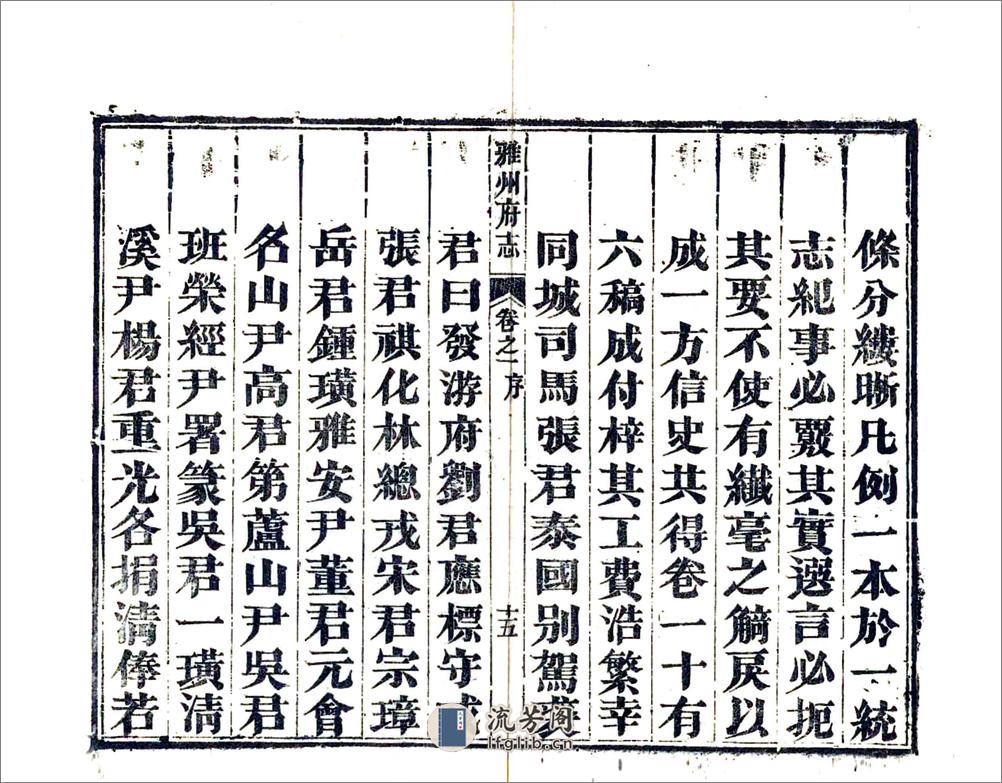 條分縷晰凡例一本於一統
志紀事必覈其實選言必扼
其要不使有纖毫之觭戾以
成一方信史共得卷一十有
六稿成付梓其工費浩繁幸
同城司馬張君泰國別駕
雅州府志 卷之一 序 十五
君曰發游府劉君應標守
張君祺化林總戎宋君宗璋
岳君鍾璜雅安尹董君元會
名山尹高君第蘆山尹吳君
班榮經尹署篆吳君一璜清
溪尹楊君重光各捐清俸若
流芳阁
lfglib.cn